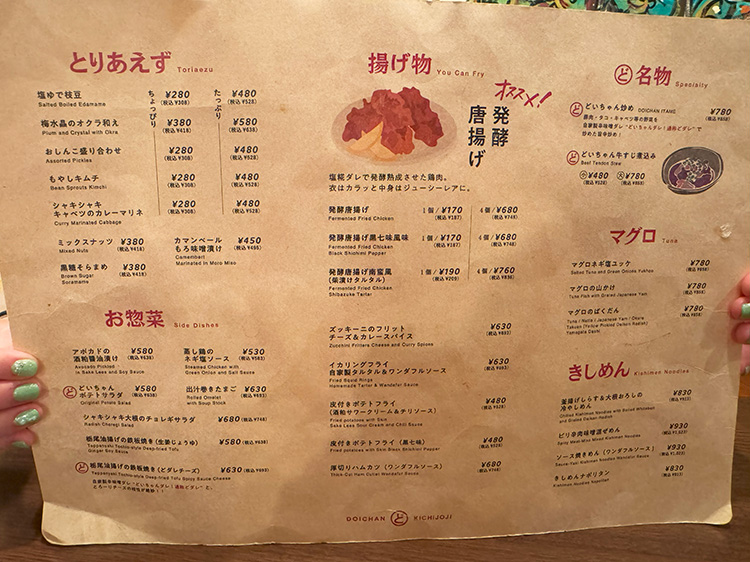 とりあえず Toriaezu
ちょっぴり
たっぷり
塩ゆで枝豆 ¥280 ¥480
Salted Boiled Edamame (税込 ¥308) (税込 ¥528)
梅水晶のオクラ和え ¥380 ¥580
Plum and Crystal with Okra (税込 ¥418) (税込 ¥638)
おしんこ盛り合わせ ¥280 ¥480
Assorted Pickles (税込 ¥308) (税込 ¥528)
もやしキムチ ¥280 ¥480
Bean Sprouts Kimchi (税込 ¥308) (税込 ¥528)
シャキシャキ
キャベツのカレーマリネ ¥280 ¥480
Curry Marinated Cabbage (税込 ¥308) (税込 ¥528)
ミックスナッツ ¥380
Mixed Nuts (税込 ¥418)
黒糖そらまめ ¥380
Brown Sugar (税込 ¥418)
Soramame
カマンベール
もろ味噌漬け ¥450
Camembert (税込 ¥495)
Marinated in Moro Miso
お惣菜 Side Dishes
アボカドの
酒粕醤油漬け ¥580
Avocado Pickled (税込 ¥638)
in Sake Lees and Soy Sauce
蒸し鶏の
ネギ塩ソース ¥530
Steamed Chicken with (税込 ¥583)
Green Onion and Salt Sauce
ど どいちゃん
ポテトサラダ ¥580
Original Potato Salad (税込 ¥638)
出汁巻きたまご ¥630
Rolled Omelet (税込 ¥693)
with Soup Stock
シャキシャキ大根のチョレギサラダ ¥680 (税込 ¥748)
Radish Choregi Salad
栃尾油揚げの鉄板焼き(生姜じょうゆ) ¥580 (税込 ¥638)
Teppanyaki Tochio-style Deep-fried Tofu
Ginger Soy Sauce
ど 栃尾油揚げの鉄板焼き(とダレチーズ) ¥630 (税込 ¥693)
Teppanyaki Tochio-style Deep-fried Tofu Spicy Sauce Cheese
揚げ物 You Can Fry
オススメ!
発酵
唐揚げ
塩糀ダレで発酵熟成させた鶏肉。
衣はカラッと中身はジューシーレアに。
発酵唐揚げ 1個/¥170 4個/¥680
Fermented Fried Chicken (税込 ¥187) (税込 ¥748)
発酵唐揚げ黒七味風味 1個/¥170 4個/¥680
Fermented Fried Chicken (税込 ¥187) (税込 ¥748)
Black Shichimi Pepper
発酵唐揚げ南蛮風
(柴漬けタルタル) 1個/¥190 4個/¥760
Fermented Fried Chicken (税込 ¥209) (税込 ¥836)
Shibazuke Tartar
ズッキーニのフリット
チーズ&カレースパイス ¥630
Zucchini Fritters Cheese and Curry Spices (税込 ¥693)
イカリングフライ
自家製タルタル&ワンダフルソース ¥630
Fried Squid Rings (税込 ¥693)
Homemade Tartar & Wonderful Sauce
皮付きポテトフライ
(酒粕サワークリーム&チリソース) ¥480
Fried potatoes with Skin (税込 ¥528)
Sake Lees Sour Cream and Chili Sauce
皮付きポテトフライ(黒七味) ¥480
Fried potatoes with Skin Black Shichimi Pepper (税込 ¥528)
厚切りハムカツ(ワンダフルソース) ¥680
Thick-Cut Ham Cutlet Wonderful Sauce (税込 ¥748)
ど 名物 Specialty
ど どいちゃん炒め DOICHAN ITAME ¥780
豚肉・タコ・キャベツ等の野菜を (税込 ¥858)
自家製辛味噌ダレ“どいちゃんダレ!通称どダレ”で
炒めた旨辛炒め!
ど どいちゃん牛すじ煮込み
Beef Tendos Stew
小 ¥480 大 ¥780
(税込 ¥528) (税込 ¥858)
マグロ Tuna
マグロネギ塩ユッケ ¥780
Salted Tuna and Green Onions Yukhoe (税込 ¥858)
マグロの山かけ ¥780
Tuna Pick with Grated Japanese Yam (税込 ¥858)
マグロのばくだん ¥780
Tuna / Natto / Japanese Yam / Okura (税込 ¥858)
Takuan (Yellow Pickled Daikon Radish)
Yamagata Dashi
きしめん Kishimen Noodles
釜揚げしらす&大根おろしの
冷やしきしめん ¥830
Chilled Kishimen Noodles with Boiled Whitebait (税込 ¥913)
and Grated Daikon Radish
ピリ辛肉味噌混ぜめん ¥930
Spicy Meat-Miso Mixed Kishimen Noodles (税込 ¥1,023)
ソース焼きめん(ワンダフルソース) ¥930
(税込 ¥1,023)
きしめんナポリタン ¥830
Kishimen Noodles Napolitan (税込 ¥913)
DOICHAN ど KICHIJOJI